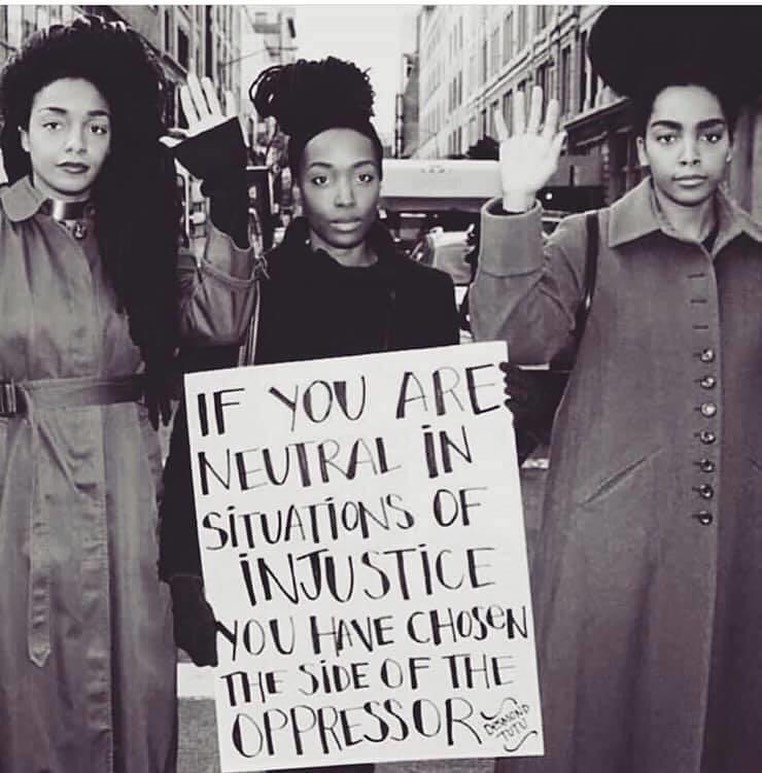 IF YOU ARE
NEUTRAL iN
SiTUATiONS OF
iNJUSTiCE
YOU HAVE CHOSeN
THE SiDE OF THE
OPPRESSOR
DESMOND
TUTU